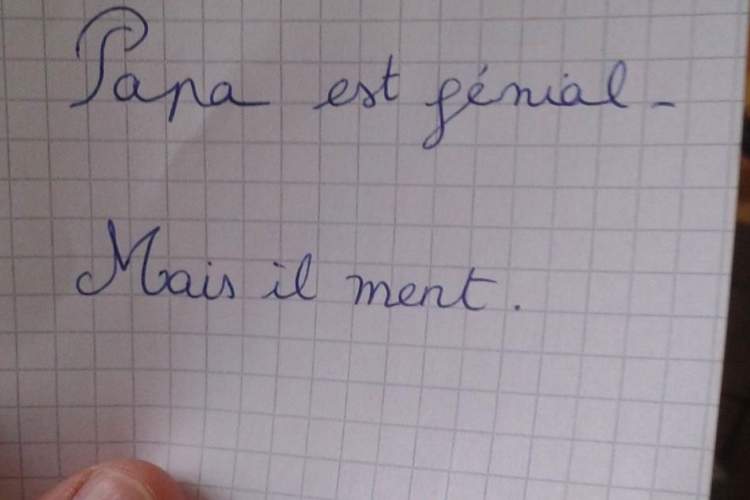 Papa est génial -
Mais il ment.